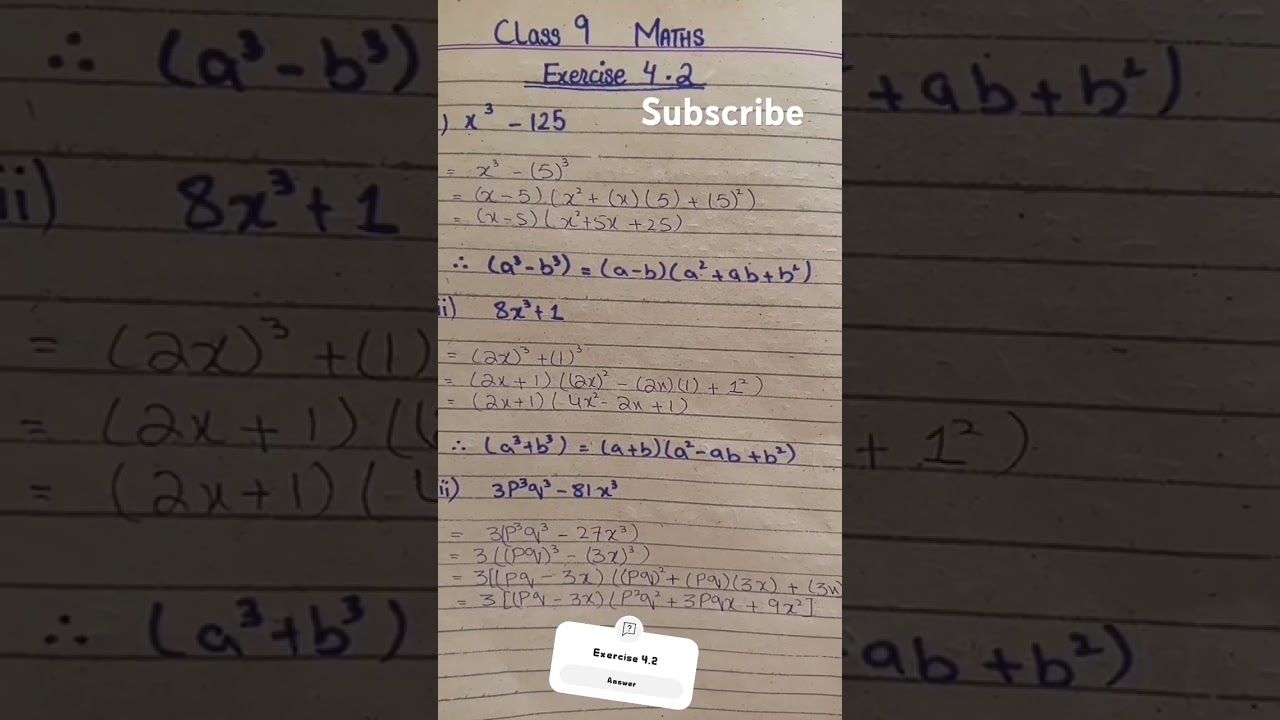 Class 9 Maths
Exercise 4.2
Subscribe
) x³ - 125
= x³ - (5)³
= (x - 5) (x² + (x) (5) + (5)²)
= (x - 5) (x² + 5x + 25)
∴ (a³ - b³) = (a - b) (a² + ab + b²)
ii) 8x³ + 1
= (2x)³ + (1)³
= (2x + 1) ((2x)² - (2x) (1) + 1²)
= (2x + 1) (4x² - 2x + 1)
∴ (a³ + b³) = (a + b) (a² - ab + b²)
ii) 3P³q³ - 81x³
= 3(P³q³ - 27x³)
= 3 ((Pq)³ - (3x)³)
= 3[(Pq - 3x) ((Pq)² + (Pq) (3x) + (3x)
= 3 [(Pq - 3x) (P²q² + 3Pqx + 9x²]
Exercise 4.2
Answer
∴ (a³ - b³)
+ ab + b²)
ii) 8x³ + 1
= (2x)³ + (1)
= (2x + 1) (
+ 1²)
= (2x + 1) (
∴ (a³ + b³)
ab + b²)